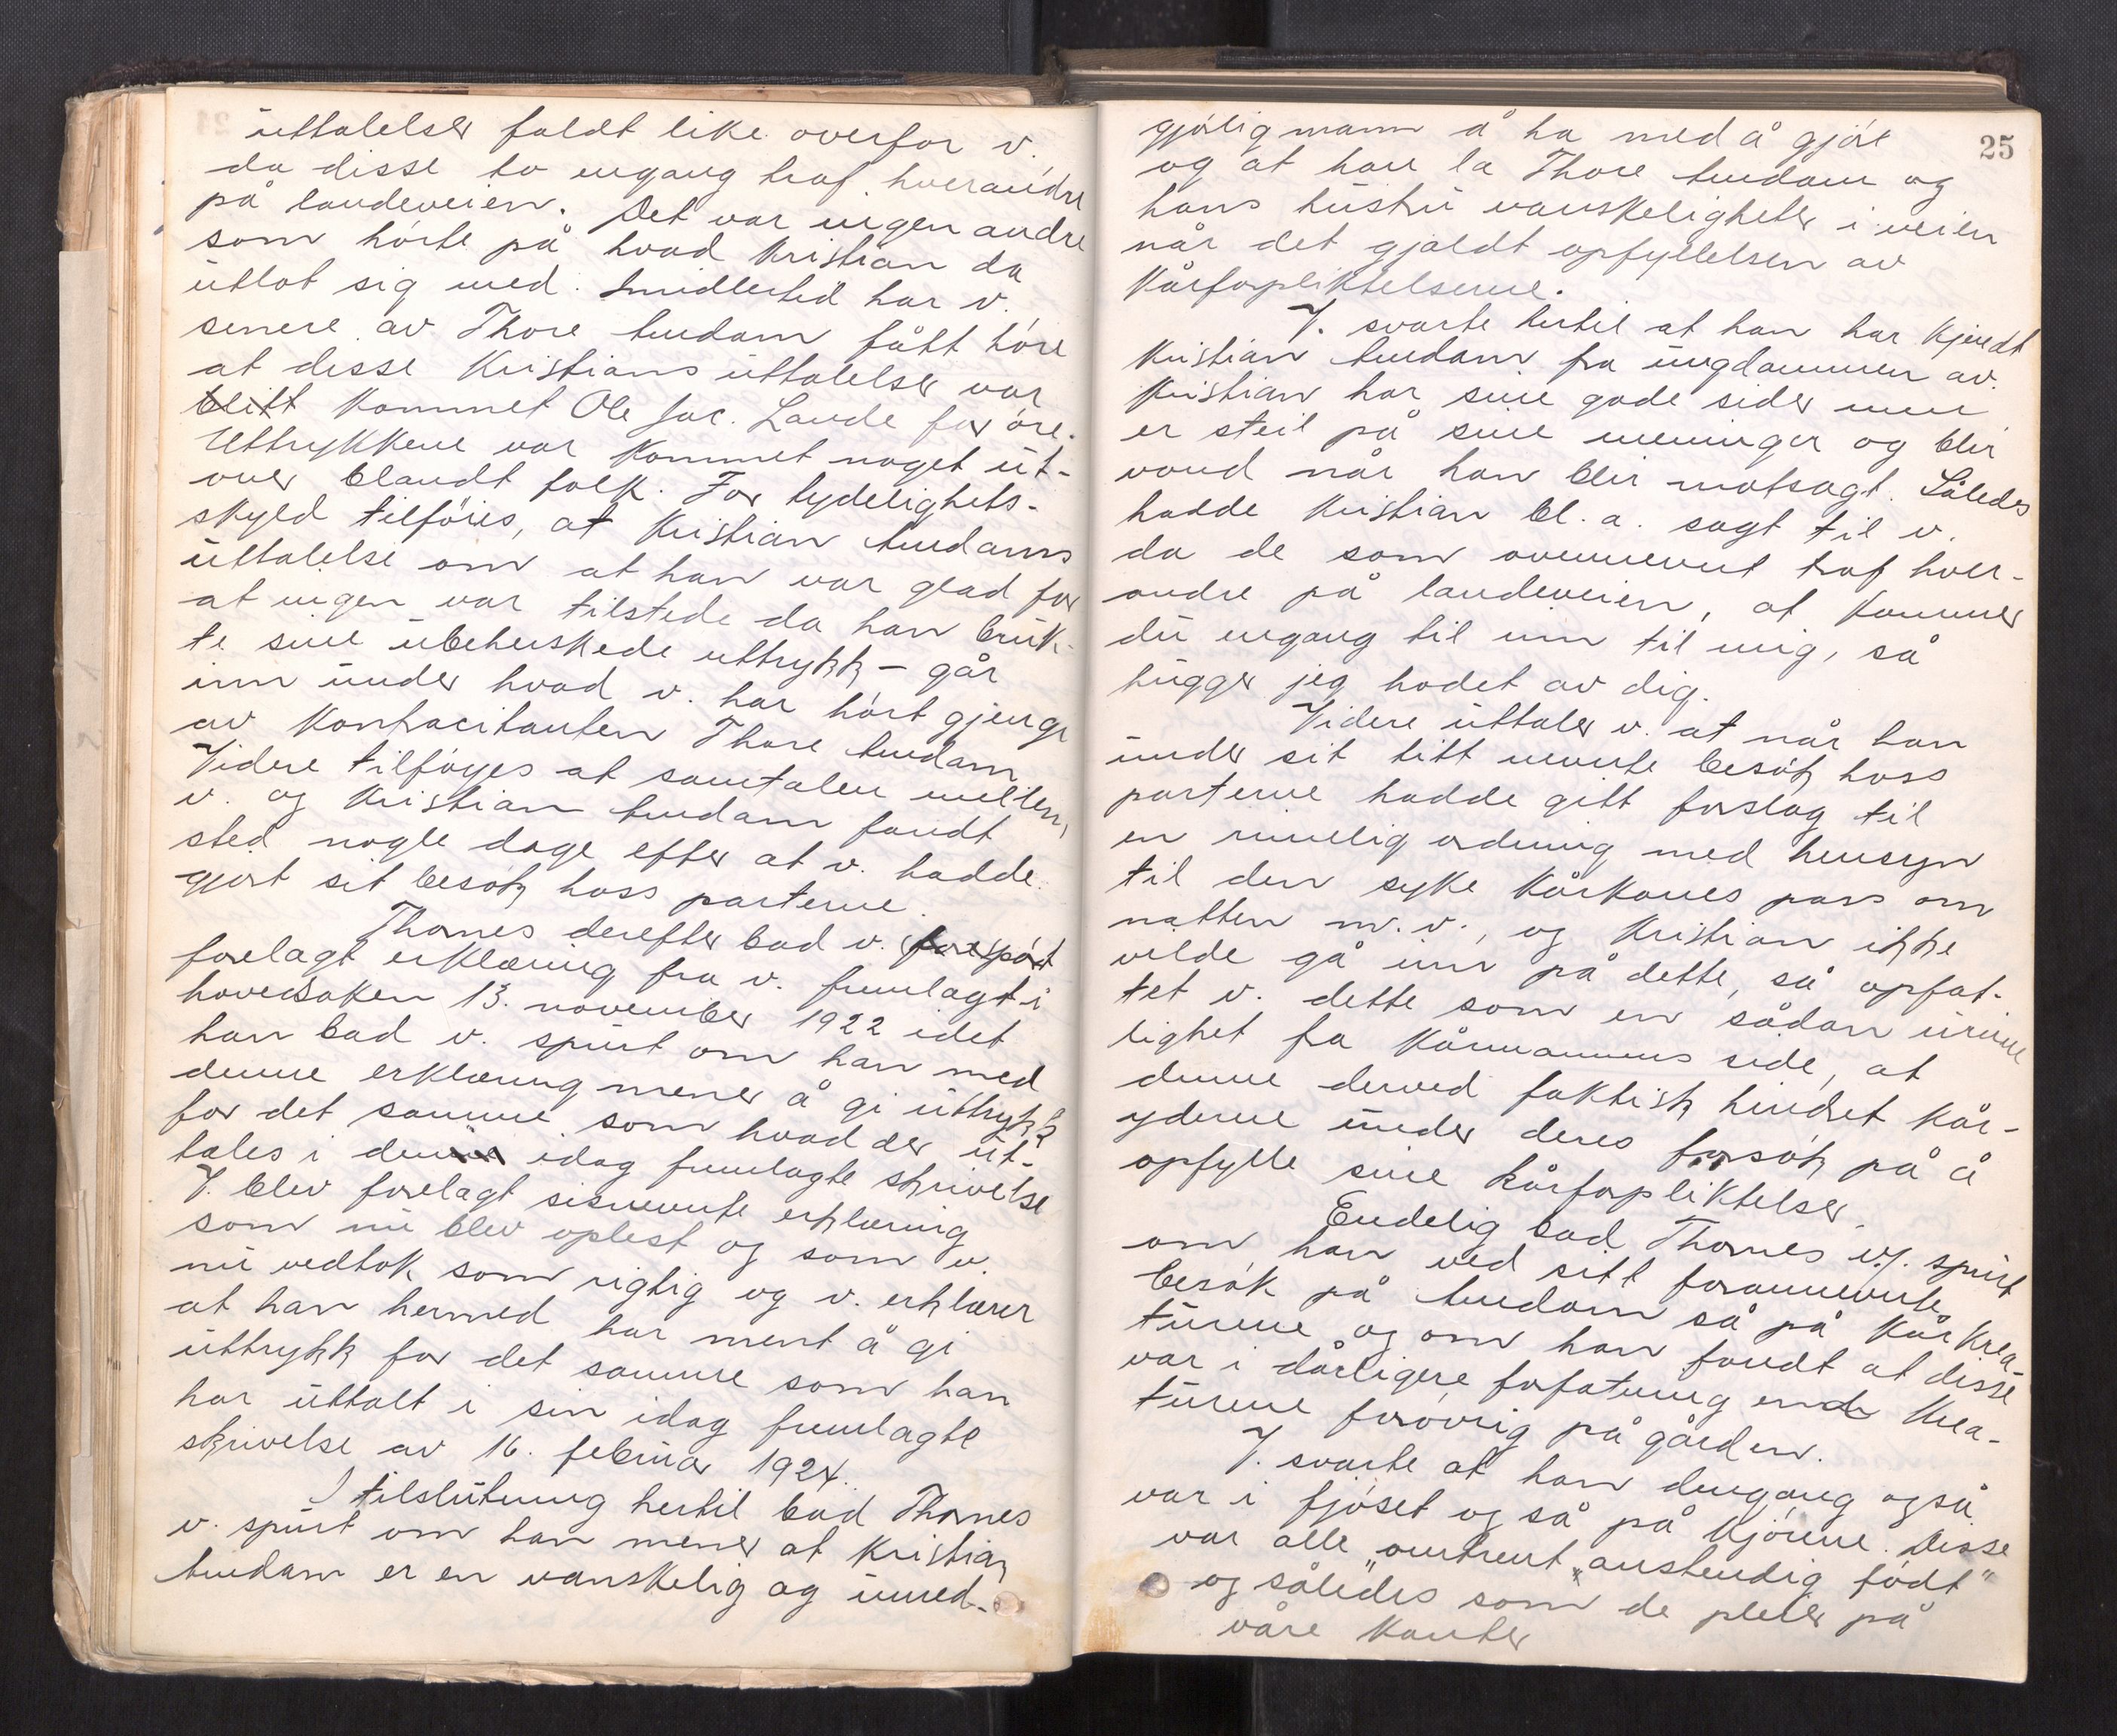 uttalelser faldt like overfor v.
da disse to engang traf hverandre
på landeveien. Det var ingen andre
som hørte på hvad Kristian da
utlot sig med. Imidlertid har v.
senere av Thore Lindam fått høre
at disse Kristians uttalelser var
blitt kommet Ole Jac. Lande for øre.
Uttrykkene var kommet noget ut-
over blandt folk. For tydelighets-
skyld tilføies, at Kristian Lindams
uttalelse om at han var glad for
at ingen var tilstede da han bruk-
te sine ubeherskede uttrykk – går
inn under hvad v. har hørt gjengi
av Kontracitanten Thore Lindam
Videre tilføyes at samtalen mellem
v. og Kristian Lindam fandt
sted nogle dage efter at v. hadde
gjort sit besøk hoss parterne.
Thomes derefter bad v. forespørt
forelagt erklæring fra v. fremlagt i
hovedsaken 13. november 1922 idet
han bad v. spurt om han med
denne erklæring mener å gi uttrykk
for det samme som hvad der ut-
tales i den idag fremlagte skrivelse?
V. blev forelagt sisnevnte erklæring
som nu blev oplest og som v.
nu vedtok som rigtig og v. erklærer
at han hermed har ment å gi
uttrykk for det samme som han
har uttalt i sin idag fremlagte
skrivelse av 16. februar 1924.
I tilslutning hertil bad Thomes
v. spurt om han mener at Kristian
Lindam er en vanskelig og umed-
25
gjørlig mann å ha med å gjøre
og at han la Thore Lindam og
hans hustru vanskeligheter i veien
når det gjaldt opfyllelsen av
kårforpliktelserne.
V. svarte hertil at han har kjendt
Kristian Lindam fra ungdommen av.
Kristian har sine gode sider men
er steil på sine meninger og blir
vond når han blir motsagt. Således
hadde Kristian bl.a. sagt til v.
da de som ovennevnt traf hver-
andre på landeveien, at kommer
du engang til inn til mig, så
hugger jeg hodet av dig.
Videre uttaler v. at når han
under sit titt nevnte besøk hoss
parterne hadde gitt forslag til
en rimelig ordning med hensyn
til den syke kårkones pass om
natten m.v., og Kristian ikke
vilde gå inn på dette, så opfat-
tet v. dette som en sådan urime
lighet fra kårmannens side, at
denne derved faktisk hindret kår-
yderne under deres forsøk på å
opfylle sine kårforpliktelser.
Endelig bad Thomes v. spurt
om han ved sitt forannevnte
besøk på Lindam så på kårkrea-
turene og om han fandt at disse
var i dårligere forfatning end krea-
turene forøvrig på gården.
V. svarte at han dengang også
var i fjøset og så på kjørene. Disse
var alle „omtrent „anstendig født"
og således som de pleier på
våre kanter